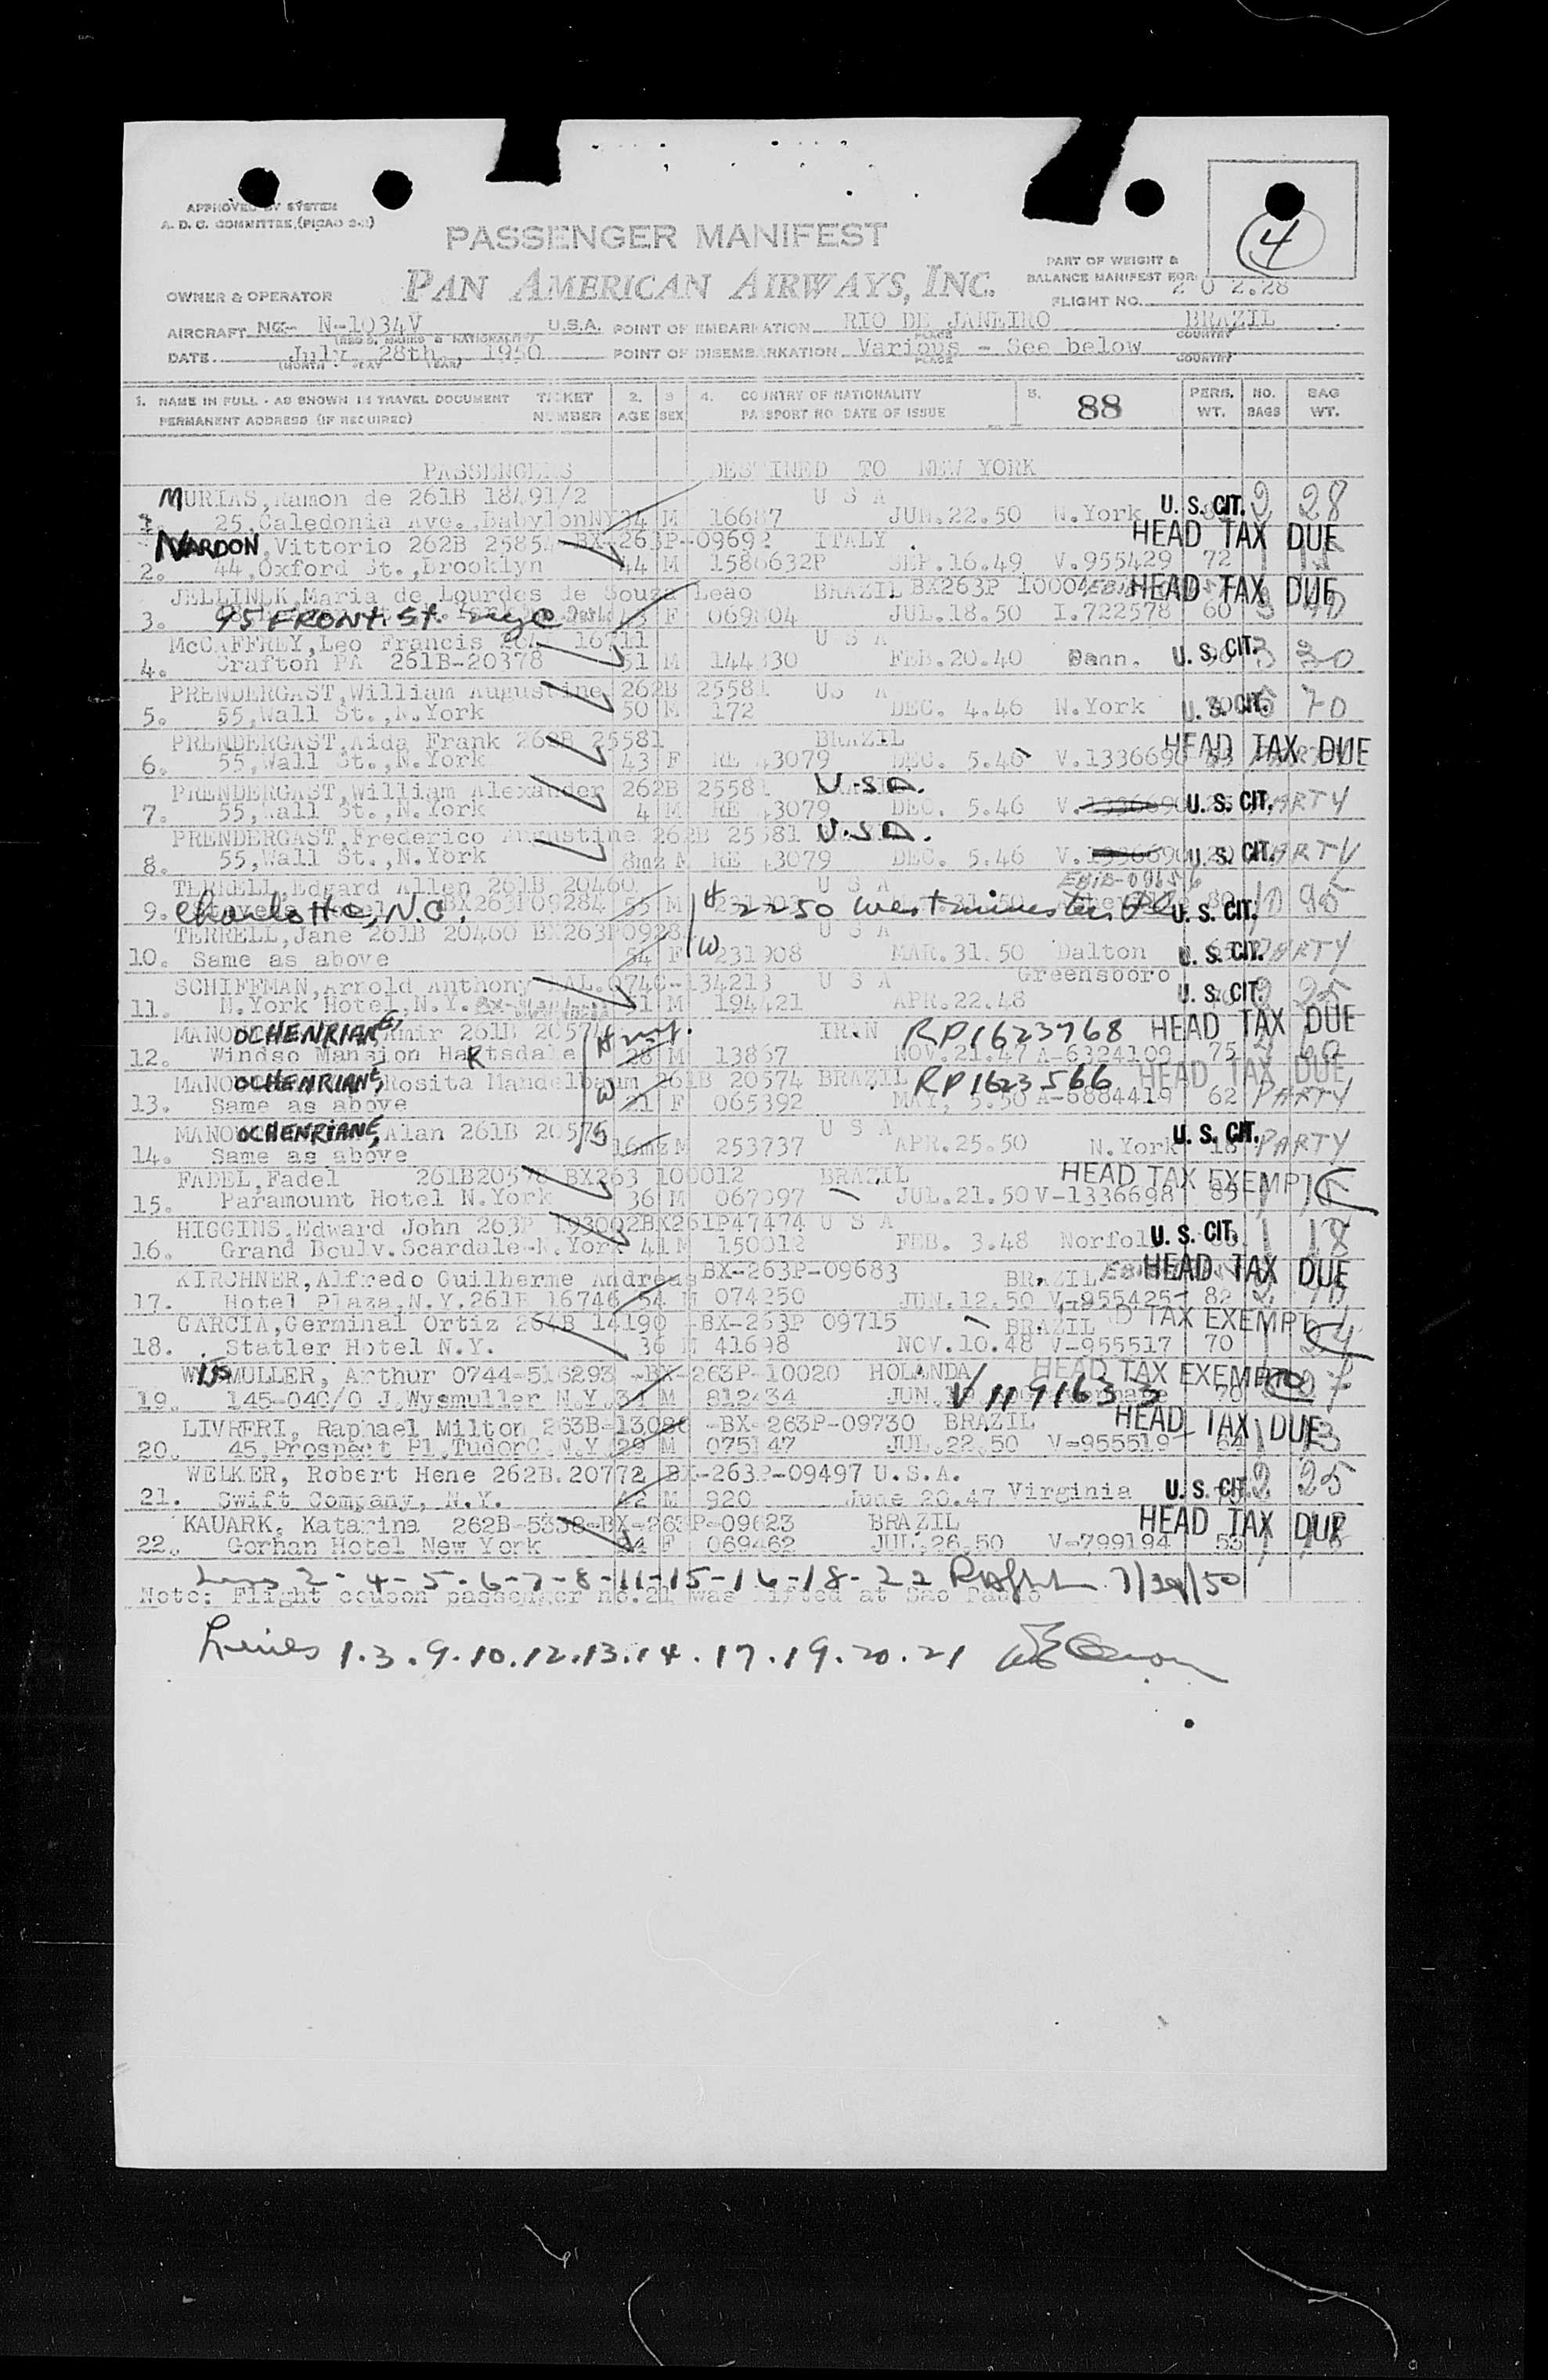 4
APPROVED BY SYSTEM
A. D. C. COMMITTEE, (PICAO 2-2)
PASSENGER MANIFEST
PART OF WEIGHT &
BALANCE MANIFEST FOR
PAN AMERICAN AIRWAYS, INC.
OWNER & OPERATOR
FLIGHT NO. 202.28
AIRCRAFT NC- N-1034V U.S.A. POINT OF EMBARKATION RIO DE JANEIRO BRAZIL
(REG'D. MARKS & NATIONALITY) PLACE COUNTRY
DATE July 28th, 1950 POINT OF DISEMBARKATION Various - See below
(MONTH DAY YEAR) PLACE COUNTRY
1. NAME IN FULL - AS SHOWN IN TRAVEL DOCUMENT TICKET 2. 3 4. COUNTRY OF NATIONALITY 5. 88 PERS. NO. BAG
PERMANENT ADDRESS (IF REQUIRED) NUMBER AGE SEX PASSPORT NO. DATE OF ISSUE WT. BAGS WT.
PASSENGERS DESTINED TO NEW YORK
MURIAS, Ramon de 261B 18491/2 U S A
1. 25, Caledonia Ave., Babylon NY 34 M 16687 JUN.22.50 N.York U. S. CIT. 2 28
NARDON, Vittorio 262B 2585 BX-263P-09692 ITALY HEAD TAX DUE
2. 44, Oxford St., Brooklyn 44 M 1586632P SEP.16.49 V.955429 72 1
JELLINEK, Maria de Lourdes de Souza Leao BRAZIL BX263P 10004 HEAD TAX DUE
3. 95 FRONT. St. nyc F 069804 JUL.18.50 I.722578 60 3
McCAFFREY, Leo Francis U S A
4. Crafton PA 261B-20378 51 M 144330 FEB.20.40 U. S. CIT. 3 30
PRENDERGAST, William Augustine 262B 25581 US A
5. 55, Wall St., N.York 50 M 172 DEC. 4.46 N.York U. S. CIT. 6 70
PRENDERGAST, Aida Frank 262B 25581 BRAZIL HEAD TAX DUE
6. 55, Wall St., N.York 43 F RE 43079 DEC. 5.46 V.1336690
PRENDERGAST, William Alexander 262B 25581 U.S.A.
7. 55, Wall St., N.York 4 M RE 43079 DEC. 5.46 V.1336690 U. S. CIT. PARTY
PRENDERGAST, Frederico Augustine 262B 25581 U.S.A.
8. 55, Wall St., N.York 8mz M RE 43079 DEC. 5.46 V.1336690 U. S. CIT. PARTY
TERRELL, Edgard Allen 261B 20460 U S A
9. Charlotte, N.C. BX263P09284 55 M H 2250 Westminster Pl U. S. CIT. 10 95
TERRELL, Jane 261B 20460 BX263P0928 U S A
10. Same as above 54 F W 231908 MAR.31.50 Dalton U. S. CIT. PARTY
SCHIFFMAN, Arnold Anthony U S A Greensboro
11. N.York Hotel, N.Y. 51 M 194421 APR.22.48 U. S. CIT. 2 25
MANOUCHENRIANE, Amir 261B 20574 IRAN RP1623768 HEAD TAX DUE
12. Windso Mansion HaRtsdale H 28 M 13867 NOV.21.47 A-6324109 75
MANOUCHENRIANE, Rosita Mandelbaum 261B 20574 BRAZIL RP1623566 HEAD TAX DUE
13. Same as above W 21 F 065392 MAY, 5.50 A-6884419 62 PARTY
MANOUCHENRIANE, Alan 261B 20575 U S A
14. Same as above 16mz M 253737 APR.25.50 N.York U. S. CIT. PARTY
FADEL, Fadel 261B20576 BX263 100012 BRAZIL HEAD TAX EXEMPT
15. Paramount Hotel N.York 36 M 067097 JUL.21.50 V-1336698 85 1
HIGGINS, Edward John 263P 193002BX261P47474 U S A
16. Grand Boulv. Scardale-N.York 41 M 150012 FEB. 3.48 Norfol U. S. CIT. 1 18
KIRCHNER, Alfredo Guilherme Andreas BX-263P-09683 BRAZIL HEAD TAX DUE
17. Hotel Plaza, N.Y. 261B 16746 54 M 074250 JUN.12.50 V-955425 82 2
GARCIA, Germinal Ortiz 264B 14190 -BX-263P 09715 BRAZIL HEAD TAX EXEMPT
18. Statler Hotel N.Y. 36 M 41698 NOV.10.48 V-955517 70 1
WYSMULLER, Arthur 0744-516293 -BX-263P-10020 HOLANDA HEAD TAX EXEMPT
19. 145-04C/O J.Wysmuller N.Y. 34 M 812434 V1191633 70
LIVRERI, Raphael Milton 263B-13086 -BX-263P-09730 BRAZIL HEAD TAX DUE
20. 45, Prospect Pl. TudorC. N.Y. 29 M 075147 JUL.22.50 V-955519 64 1 13
WELKER, Robert Hene 262B.20772 BX-263P-09497 U.S.A.
21. Swift Company, N.Y. 42 M 920 June 20.47 Virginia U. S. CIT. 2 25
KAUARK, Katarina 262B-5338-BX-263P-09623 BRAZIL HEAD TAX DUE
22. Gorhan Hotel New York 24 F 069462 JUL.26.50 V-799194 53 1
Lines 2-4-5-6-7-8-11-15-16-18-22 7/29/50
Note: Flight coupon passenger no.21 was lifted at Sao Paulo
Lines 1.3.9.10.12.13.14.17.19.20.21